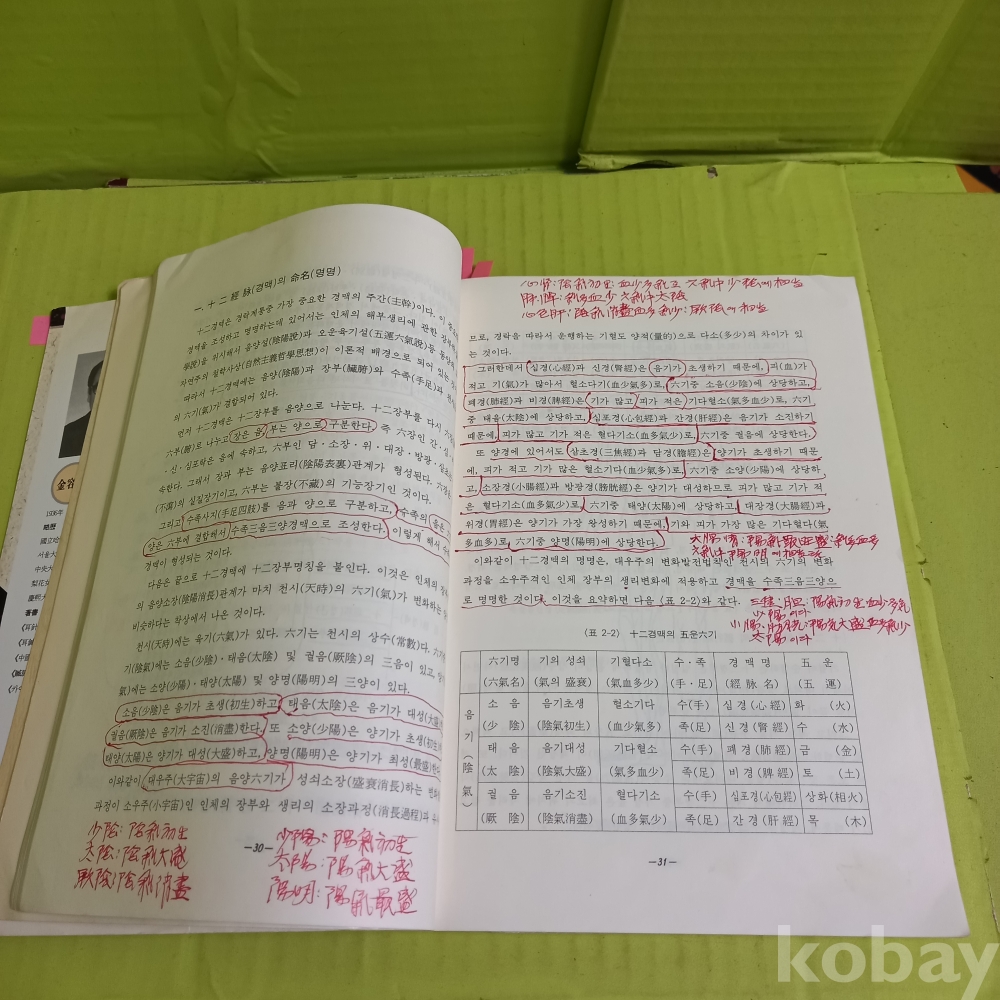 一. 十二經 脉(경맥)의 命名(명명)
十二경맥은 경락계통중 가장 중요한 경맥의 주간(主幹)이다. 이
경맥을 조성하고 명명하는데 있어서는 인체의 해부생리에 관한
學說)을 위시해서 음양설(陰陽說)과 오운육기설(五運六氣說)등
자연주의 철학사상(自然主義哲學思想)이 이론적 배경으로 되어 있
따라서 十二경맥에는 음양(陰陽)과 장부(臟腑)와 수족(手足)과
의 六기(氣)가 결합되어 있다.
먼저 十二경맥은 十二장부를 음양으로 나눈다. 十二장부를 다시
부(腑)로 나누고 장은 음, 부는 양으로 구분한다. 즉 六장인 간·심·
·신·심포락은 음에 속하고, 六부인 담·소장·위·대장·방광·삼초
속한다. 그래서 장과 부는 음양표리(陰陽表裏)관계가 형성된다. 六장
(不瀉)의 실질장기이고, 六부는 불장(不藏)의 기능장기인 것이다.
그리고 수족사지(手足四肢)를 음과 양으로 구분하고, 수족의 음은
양은 六부에 결합해서 수족三음三양경맥으로 조성한다. 이렇게 해서
경맥이 형성되는 것이다.
다음은 끝으로 十二경맥에 十二장부명칭을 붙인다. 이것은 인체의 장
의 음양소장(陰陽消長)관계가 마치 천시(天時)의 六기(氣)가 변화하는
비슷하다는 착상에서 나온 것이다.
천시(天時)에는 육기(六氣)가 있다. 六기는 천시의 상수(常數)다.
기(陰氣)에는 소음(少陰)·태음(太陰) 및 궐음(厥陰)의 三음이 있고,
氣)에는 소양(少陽)·태양(太陽) 및 양명(陽明)의 三양이 있다.
소음(少陰)은 음기가 초생(初生)하고, 태음(太陰)은 음기가 대성(大盛)
궐음(厥陰)은 음기가 소진(消盡)한다. 또 소양(少陽)은 양기가 초생(初生
태양(太陽)은 양기가 대성(大盛)하고, 양명(陽明)은 양기가 최성(最盛)한
이와같이 대우주(大宇宙)의 음양六기가 성쇠소장(盛衰消長)하는 변화
과정이 소우주(小宇宙)인 인체의 장부와 생리의 소장과정(消長過程)과
少陰: 陰氣初生
太陰: 陰氣大盛
厥陰: 陰氣消盡
—30—
少陽: 陽氣初生
太陽: 陽氣大盛
陽明: 陽氣最盛
心腎: 陰氣初生 血少多氣 六氣中 少陰에 相当
肺脾: 氣多血少 六氣中 太陰
心包肝: 陰氣消盡 血多氣少: 厥陰에 相当
므로, 경락을 따라서 운행하는 기혈도 양적(量的)으로 다소(多少)의 차이가 있
는 것이다.
그러한데서 심경(心經)과 신경(腎經)은 음기가 초생하기 때문에, 피(血)가
적고 기(氣)가 많아서 혈소다기(血少氣多)로, 六기중 소음(少陰)에 상당하고,
폐경(肺經)과 비경(脾經)은 기가 많고 피가 적은 기다혈소(氣多血少)로, 六기
중 태음(太陰)에 상당하고, 심포경(心包經)과 간경(肝經)은 음기가 소진하기
때문에, 피가 많고 기가 적은 혈다기소(血多氣少)로, 六기중 궐음에 상당한다.
또 양경에 있어서도 삼초경(三焦經)과 담경(膽經)은 양기가 초생하기 때문
에, 피가 적고 기가 많은 혈소기다(血少氣多)로, 六기중 소양(少陽)에 상당하
고, 소장경(小腸經)과 방광경(膀胱經)은 양기가 대성하므로 피가 많고 기가 적
은 혈다기소(血多氣少)로, 六기중 태양(太陽)에 상당하고, 대장경(大腸經)과
위경(胃經)은 양기가 가장 왕성하기 때문에, 기와 피가 가장 많은 기다혈다(氣
多血多)로, 六기중 양명(陽明)에 상당한다.
이와같이 十二경맥의 명명은, 대우주의 변화발전법칙인 천시의 六기의 변화
과정을 소우주격인 인체 장부의 생리변화에 적용하고 경맥을 수족三음三양으
로 명명한 것이다. 이것을 요약하면 다음 (표 2-2)와 같다.
三焦·胆: 陽氣初生 血少多氣
少陽이다
小腸·膀胱: 陽氣大盛 血多氣少
太陽이다
(표 2-2) 十二경맥의 五운六기
六기명 기의 성쇠 기혈다소 수·족 경맥명 五운
(六氣名) (氣의 盛衰) (氣血多少) (手·足) (經脉名) (五運)
음기(陰氣)
소음 음기초생 혈소기다 수(手) 심경(心經) 화(火)
(少陰) (陰氣初生) (血少氣多) 족(足) 신경(腎經) 수(水)
태음 음기대성 기다혈소 수(手) 폐경(肺經) 금(金)
(太陰) (陰氣大盛) (氣多血少) 족(足) 비경(脾經) 토(土)
궐음 음기소진 혈다기소 수(手) 심포경(心包經) 상화(相火)
(厥陰) (陰氣消盡) (血多氣少) 족(足) 간경(肝經) 목(木)
—31—
kobay